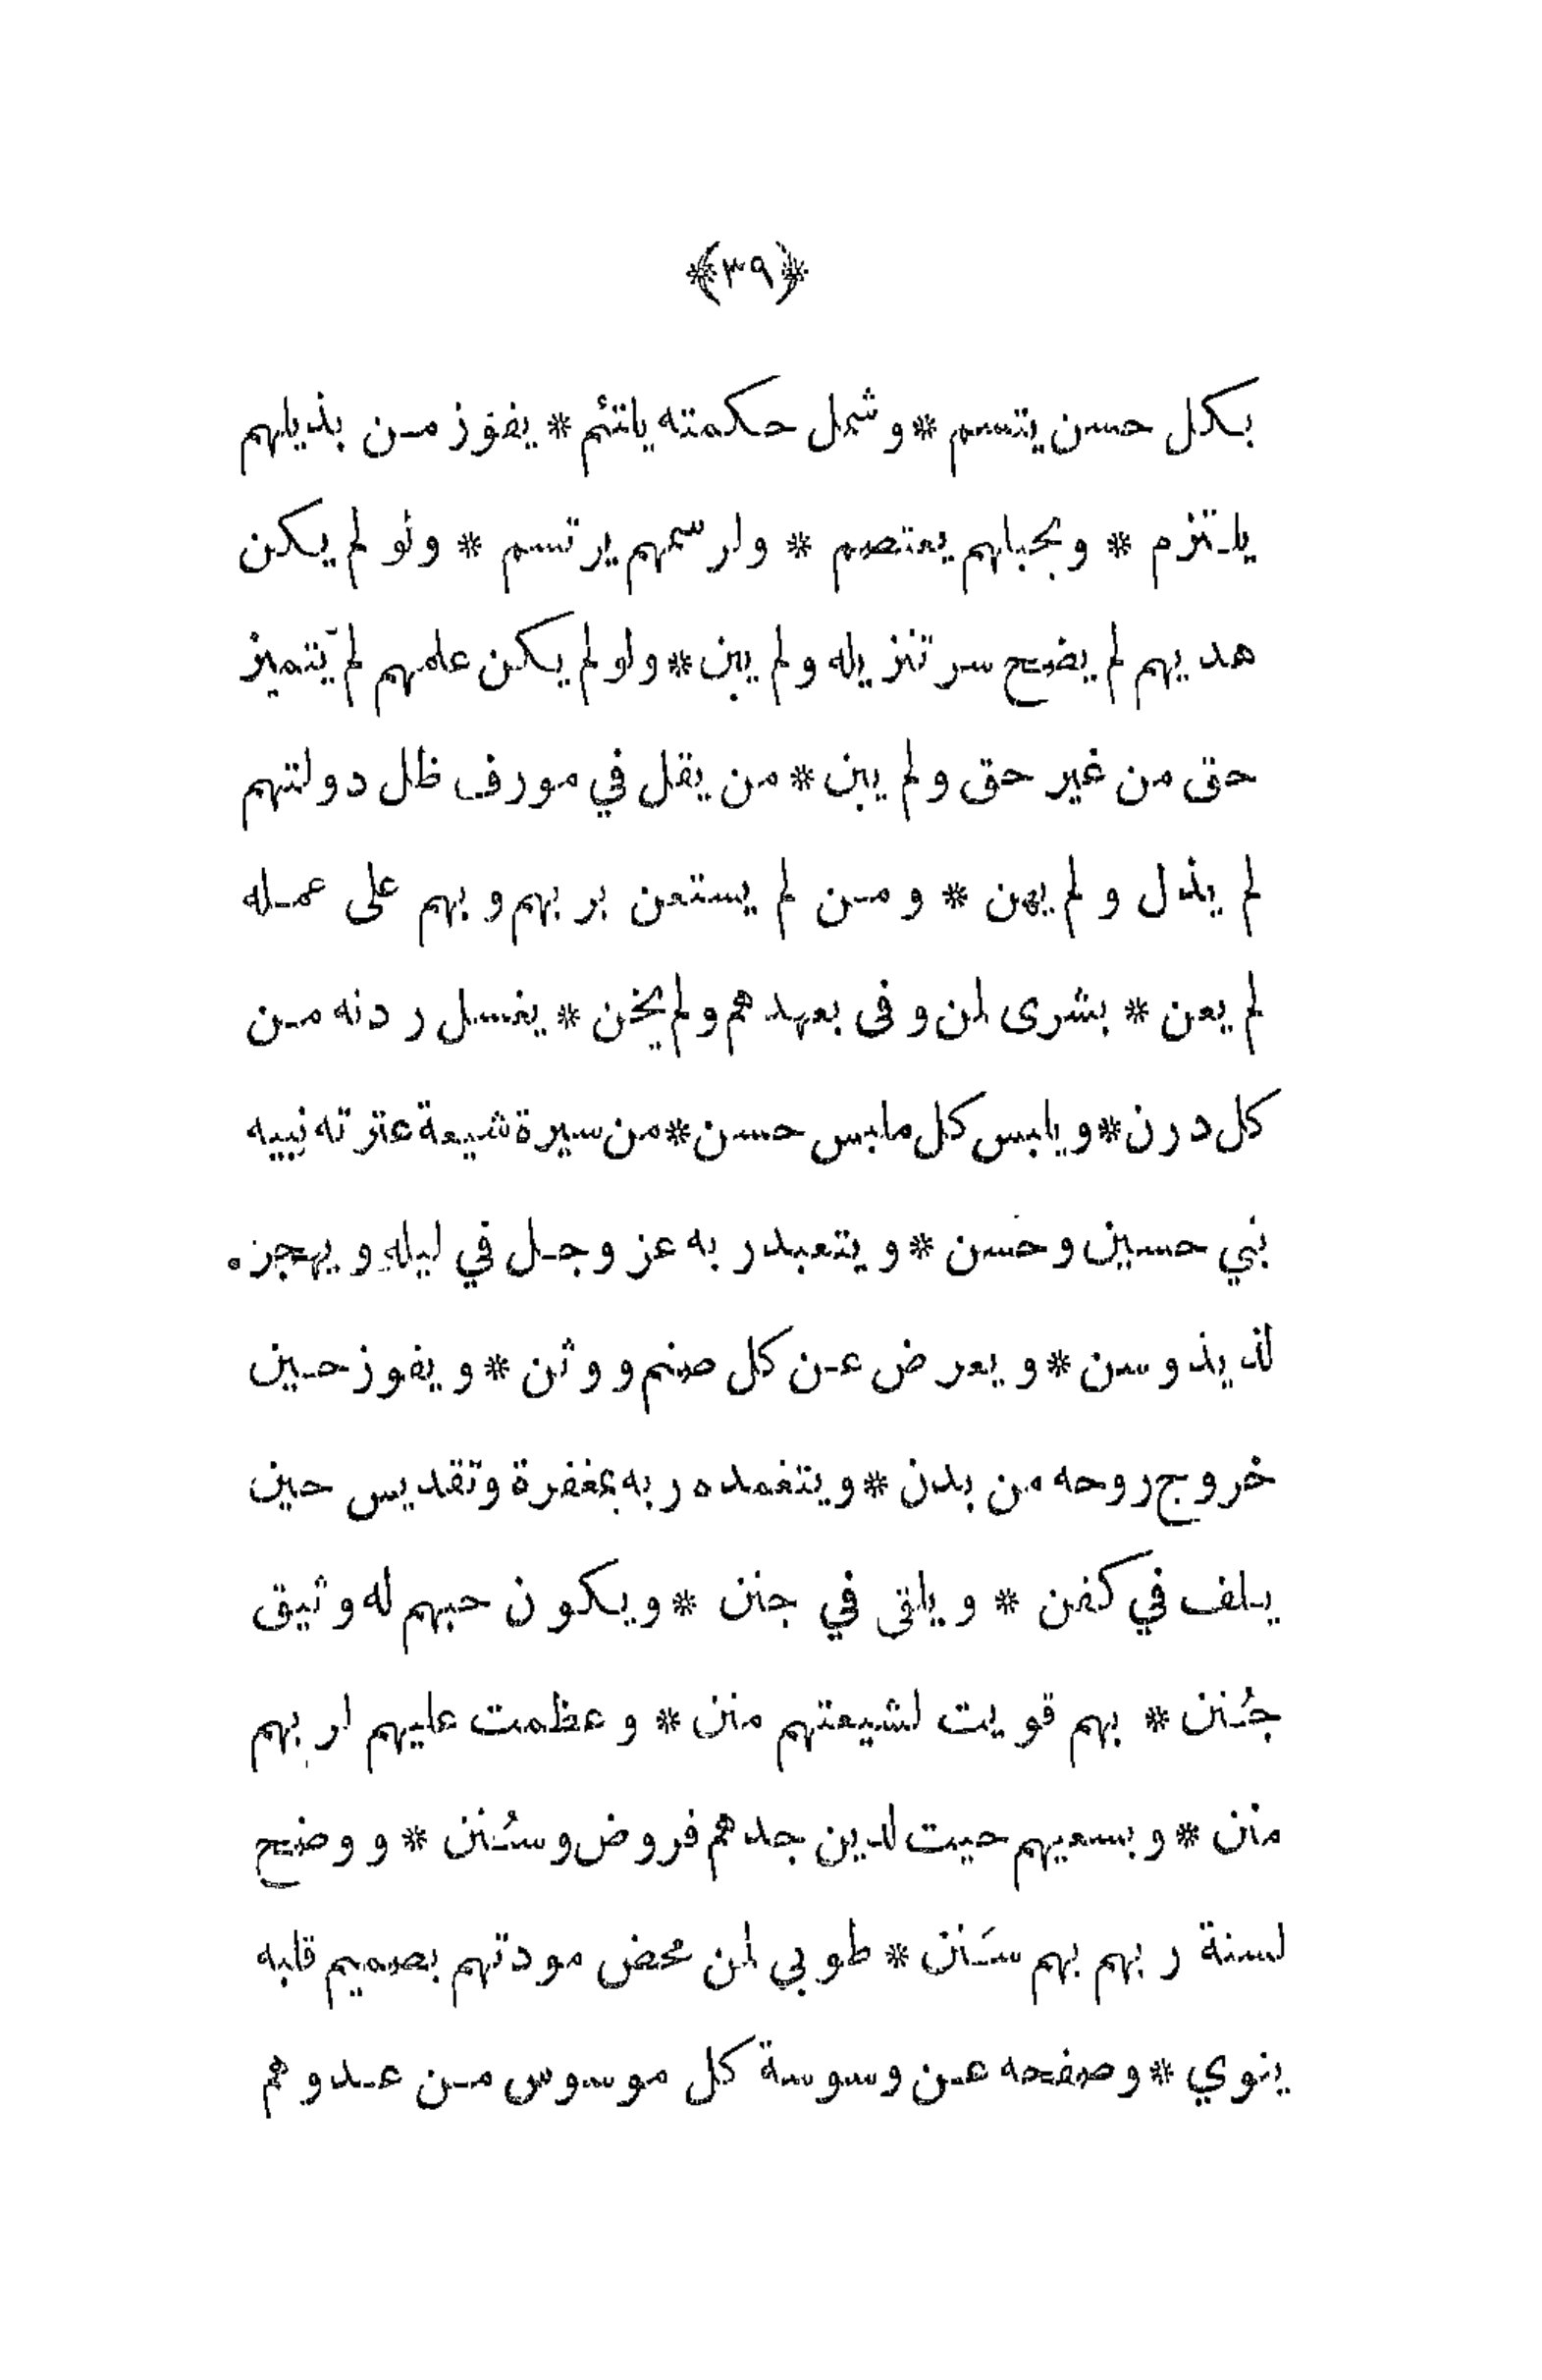 ﴿٣٩﴾
بكل حسن يتسم * وشمل حكمته يلتئم * يفوز من بذيلهم
يلتزم * وبحبلهم يعتصم * ولرسمهم يرتسم * ولو لم يكن
هديهم لم يضح سر تنزيله ولم يبن * ولو لم يكن علمهم لم يتميز
حق من غير حق ولم يبن * من يقل في مورف ظل دولتهم
لم يذل ولم يهن * ومن لم يستعن بربهم وبهم على عمله
لم يعن * بشرى لمن وفى بعهدهم ولم يخن * يغسل ردنه من
كل درن * ويلبس كل ملبس حسن * من سيرة شيعة عترته نبيه
بني حسين وحسن * ويتعبد ربه عز وجل في ليله ويهجر
لذيذ وسن * ويعرض عن كل صنم ووثن * ويفوز حين
خروج روحه من بدن * ويتغمده ربه بمغفرة وتقديس حين
يلف في كفن * ويلقى في جنن * ويكون حبهم له وثيق
جُنن * بهم قويت لشيعتهم منن * وعظمت عليهم لربهم
منن * وبسعيهم حييت لدين جدهم فروض وسُنن * ووضح
لسنة ربهم بهم سَنن * طوبى لمن محض مودتهم بصميم قلبه
ينوي * وصفحه عن وسوسة كل موسوس من عدوهم